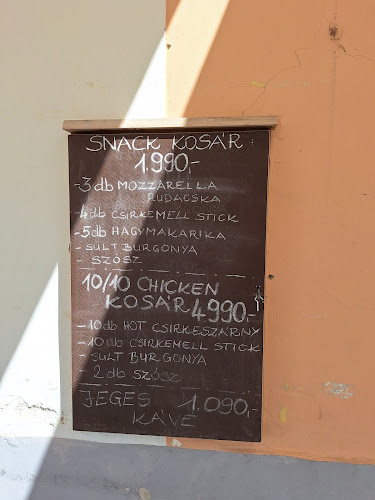 SNACK KOSÁR
1.990,-
-3 db MOZZARELLA
RUDACSKA
-4 db CSIRKEMELL STICK
-5 db HAGYMAKARIKA
- SÜLT BURGONYA
- SZÓSZ
10/10 CHICKEN
KOSÁR 4.990,-
-10 db HOT CSIRKESZÁRNY
-10 db CSIRKEMELL STICK
- SÜLT BURGONYA
2 db SZÓSZ
JEGES 1.090,-
KÁVÉ